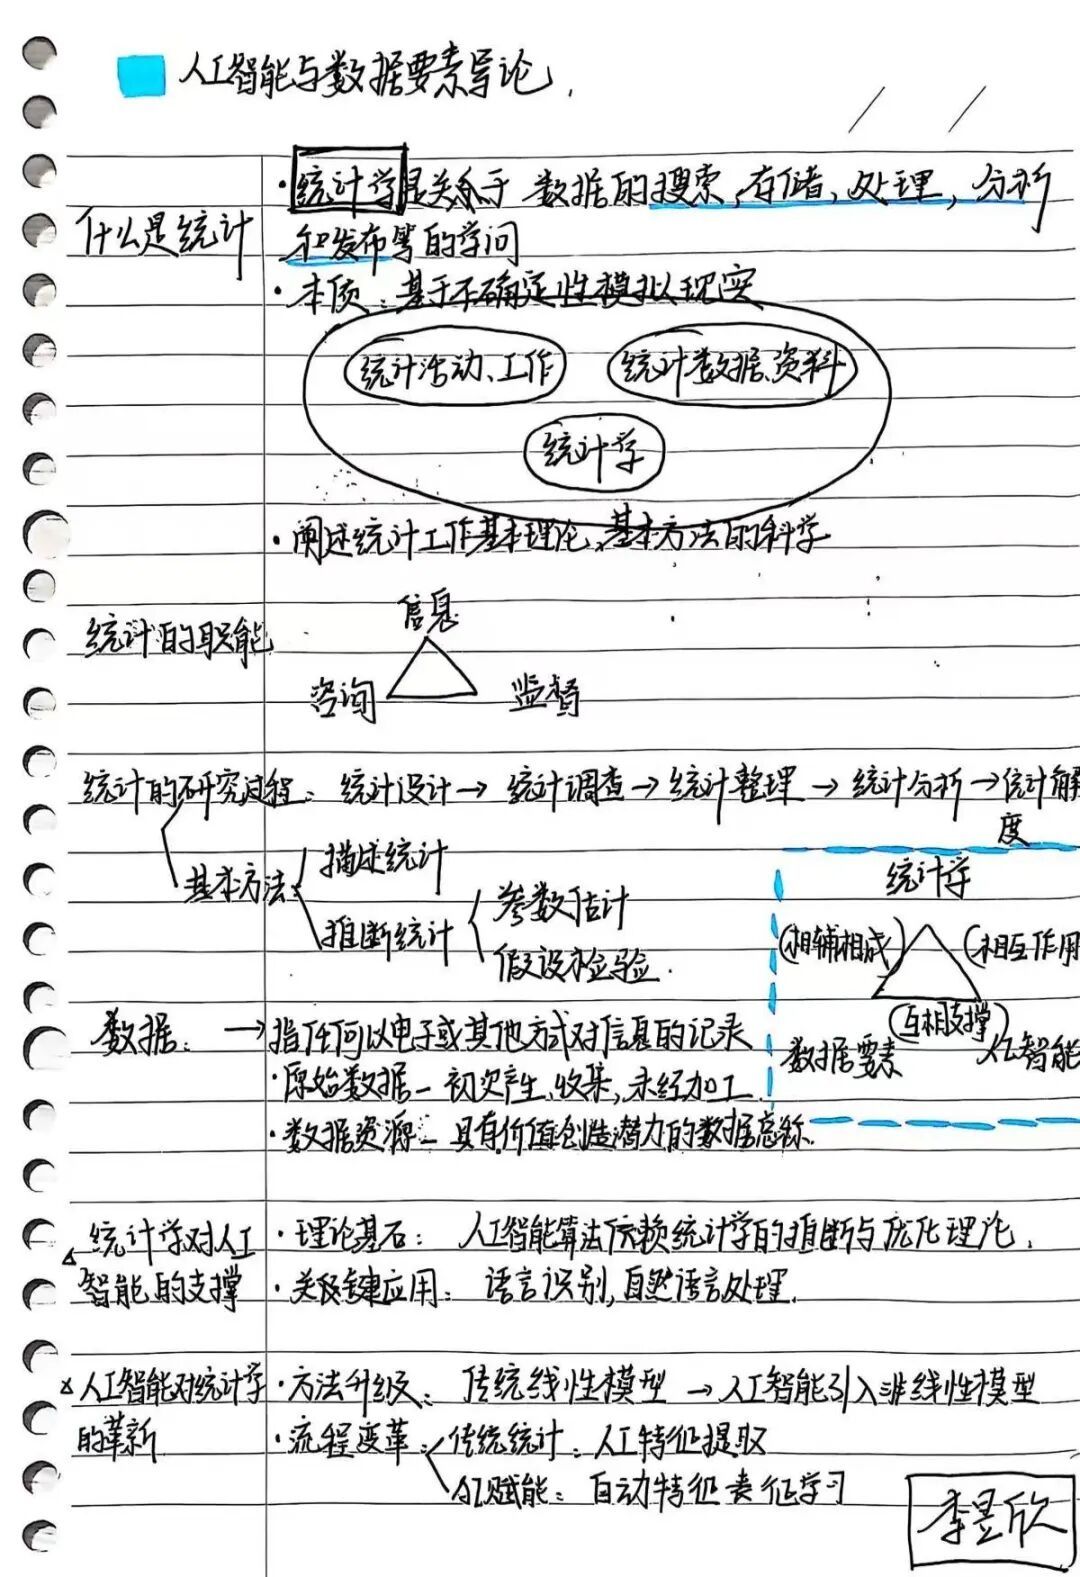 人工智能与数据要素导论
什么是统计
·统计学是关系于数据的搜索,存储,处理,分析
和发布等的学问
·本质:基于不确定性模拟现实
统计活动、工作
统计数据、资料
统计学
·阐述统计工作基本理论、基本方法的科学
统计的职能
信息
咨询
监督
统计的研究过程:统计设计→统计调查→统计整理→统计分析→统计解
度
基本方法
描述统计
推断统计
参数估计
假设检验.
统计学
(相辅相成)
(相互作用
(互相支撑)
数据要素
人工智能
数据:→指任何以电子或其他方式对信息的记录
·原始数据—初次产生、收集,未经加工
·数据资源—具有价值创造潜力的数据总称.
统计学对人工
智能的支撑
·理论基石:人工智能算法依赖统计学的推断与优化理论.
·关键应用:语言识别,自然语言处理.
人工智能对统计学
的革新
·方法升级:传统线性模型→人工智能引入非线性模型
·流程变革:
传统统计:人工特征提取
AI赋能:自动特征表征学习
李昱欣